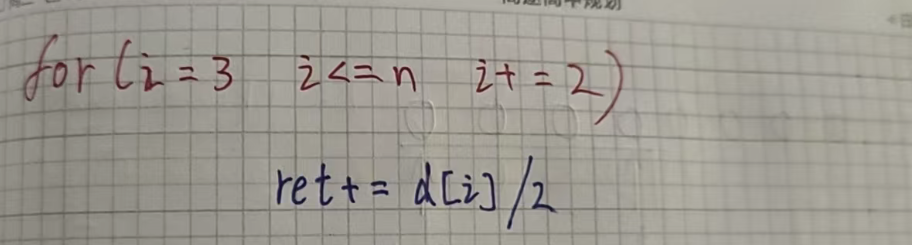 for (i = 3 i <= n i += 2)
ret += d[i] / 2